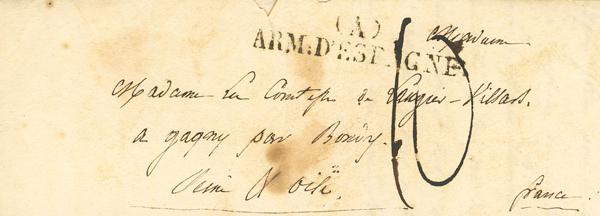 (A)
ARM: D'ESPAGNE.
Madame
Madame La Comtesse de
a gagny par Bondy.
Seine & oise.
france